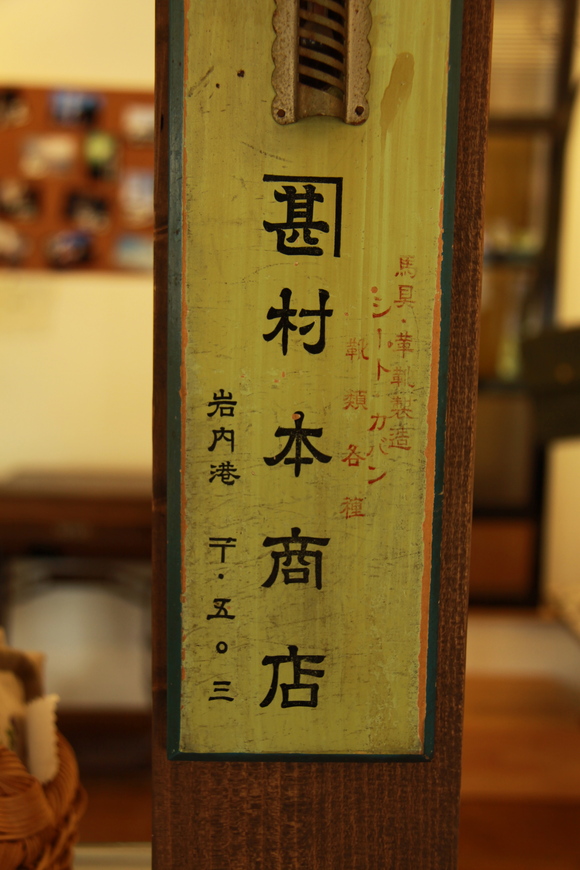 馬具・革靴製造
シートカバン
靴類各種
甚村本商店
岩内港〒・五〇三